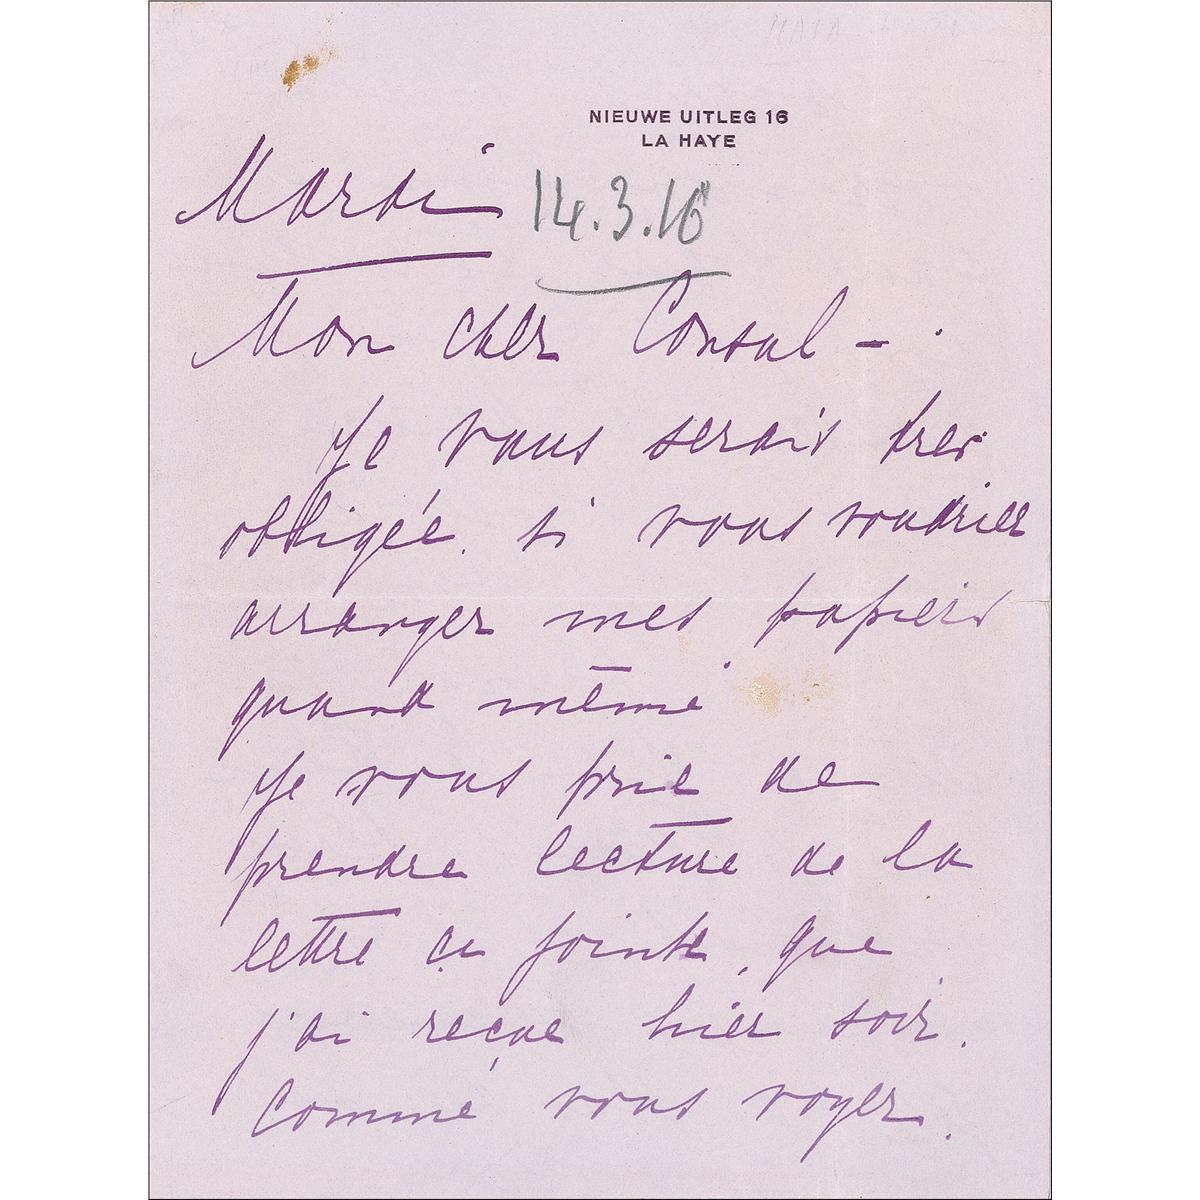 NIEUWE UITLEG 16
LA HAYE
Mardi 14.3.16
Mon cher Consul -
Je vous serais tres
obligée si vous voudriez
arranger mes papiers
quand même
Je vous prie de
prendre lecture de la
lettre ci jointe, que
j'ai reçue hier soir.
Comme vous voyez.